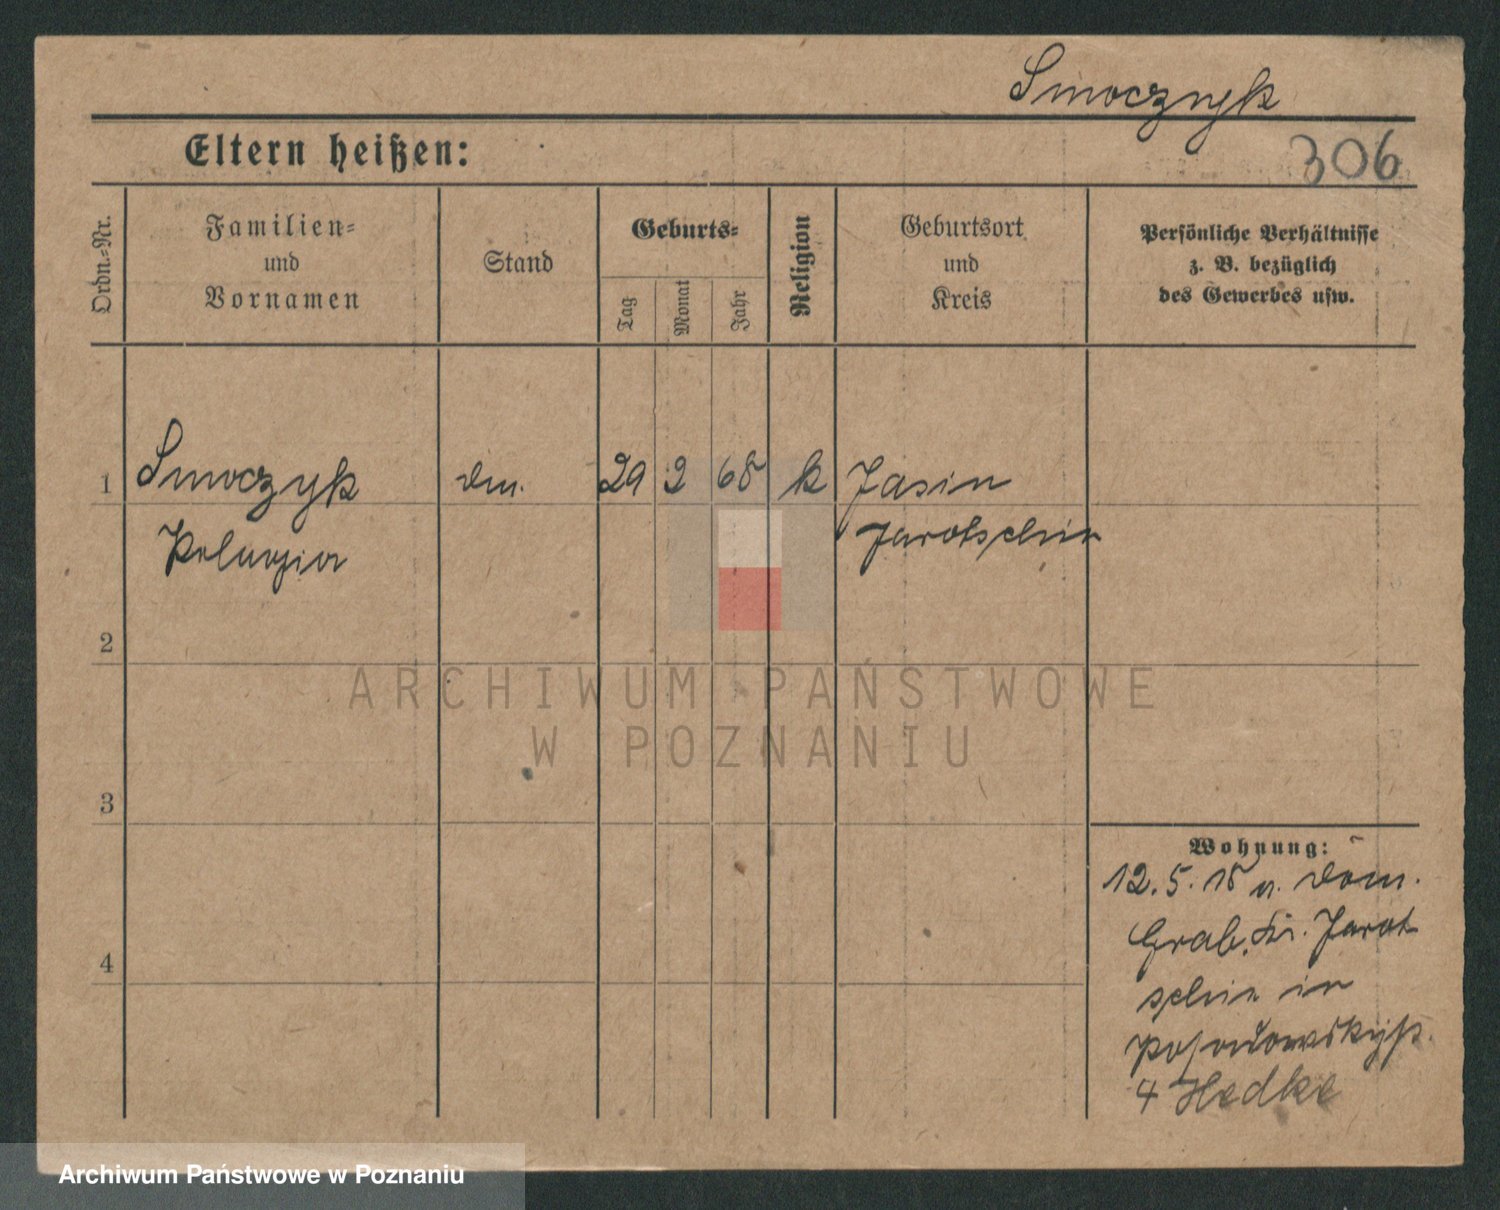 Smoczyk
Eltern heißen:
306
Ordn.-Nr.
Familien-
und
Vornamen
Stand
Geburts-
Tag
Monat
Jahr
Religion
Geburtsort
und
Kreis
Persönliche Verhältnisse
z. B. bezüglich
des Gewerbes usw.
1 Smoczyk 29 2 68 k Jasin
Pelagia Jarotschin
2
3
4
Wohnung:
12.5.18 v. Dom.
Grab, Kr. Jarot
schin in
4 Hedke
ARCHIWUM PAŃSTWOWE
W POZNANIU
Archiwum Państwowe w Poznaniu